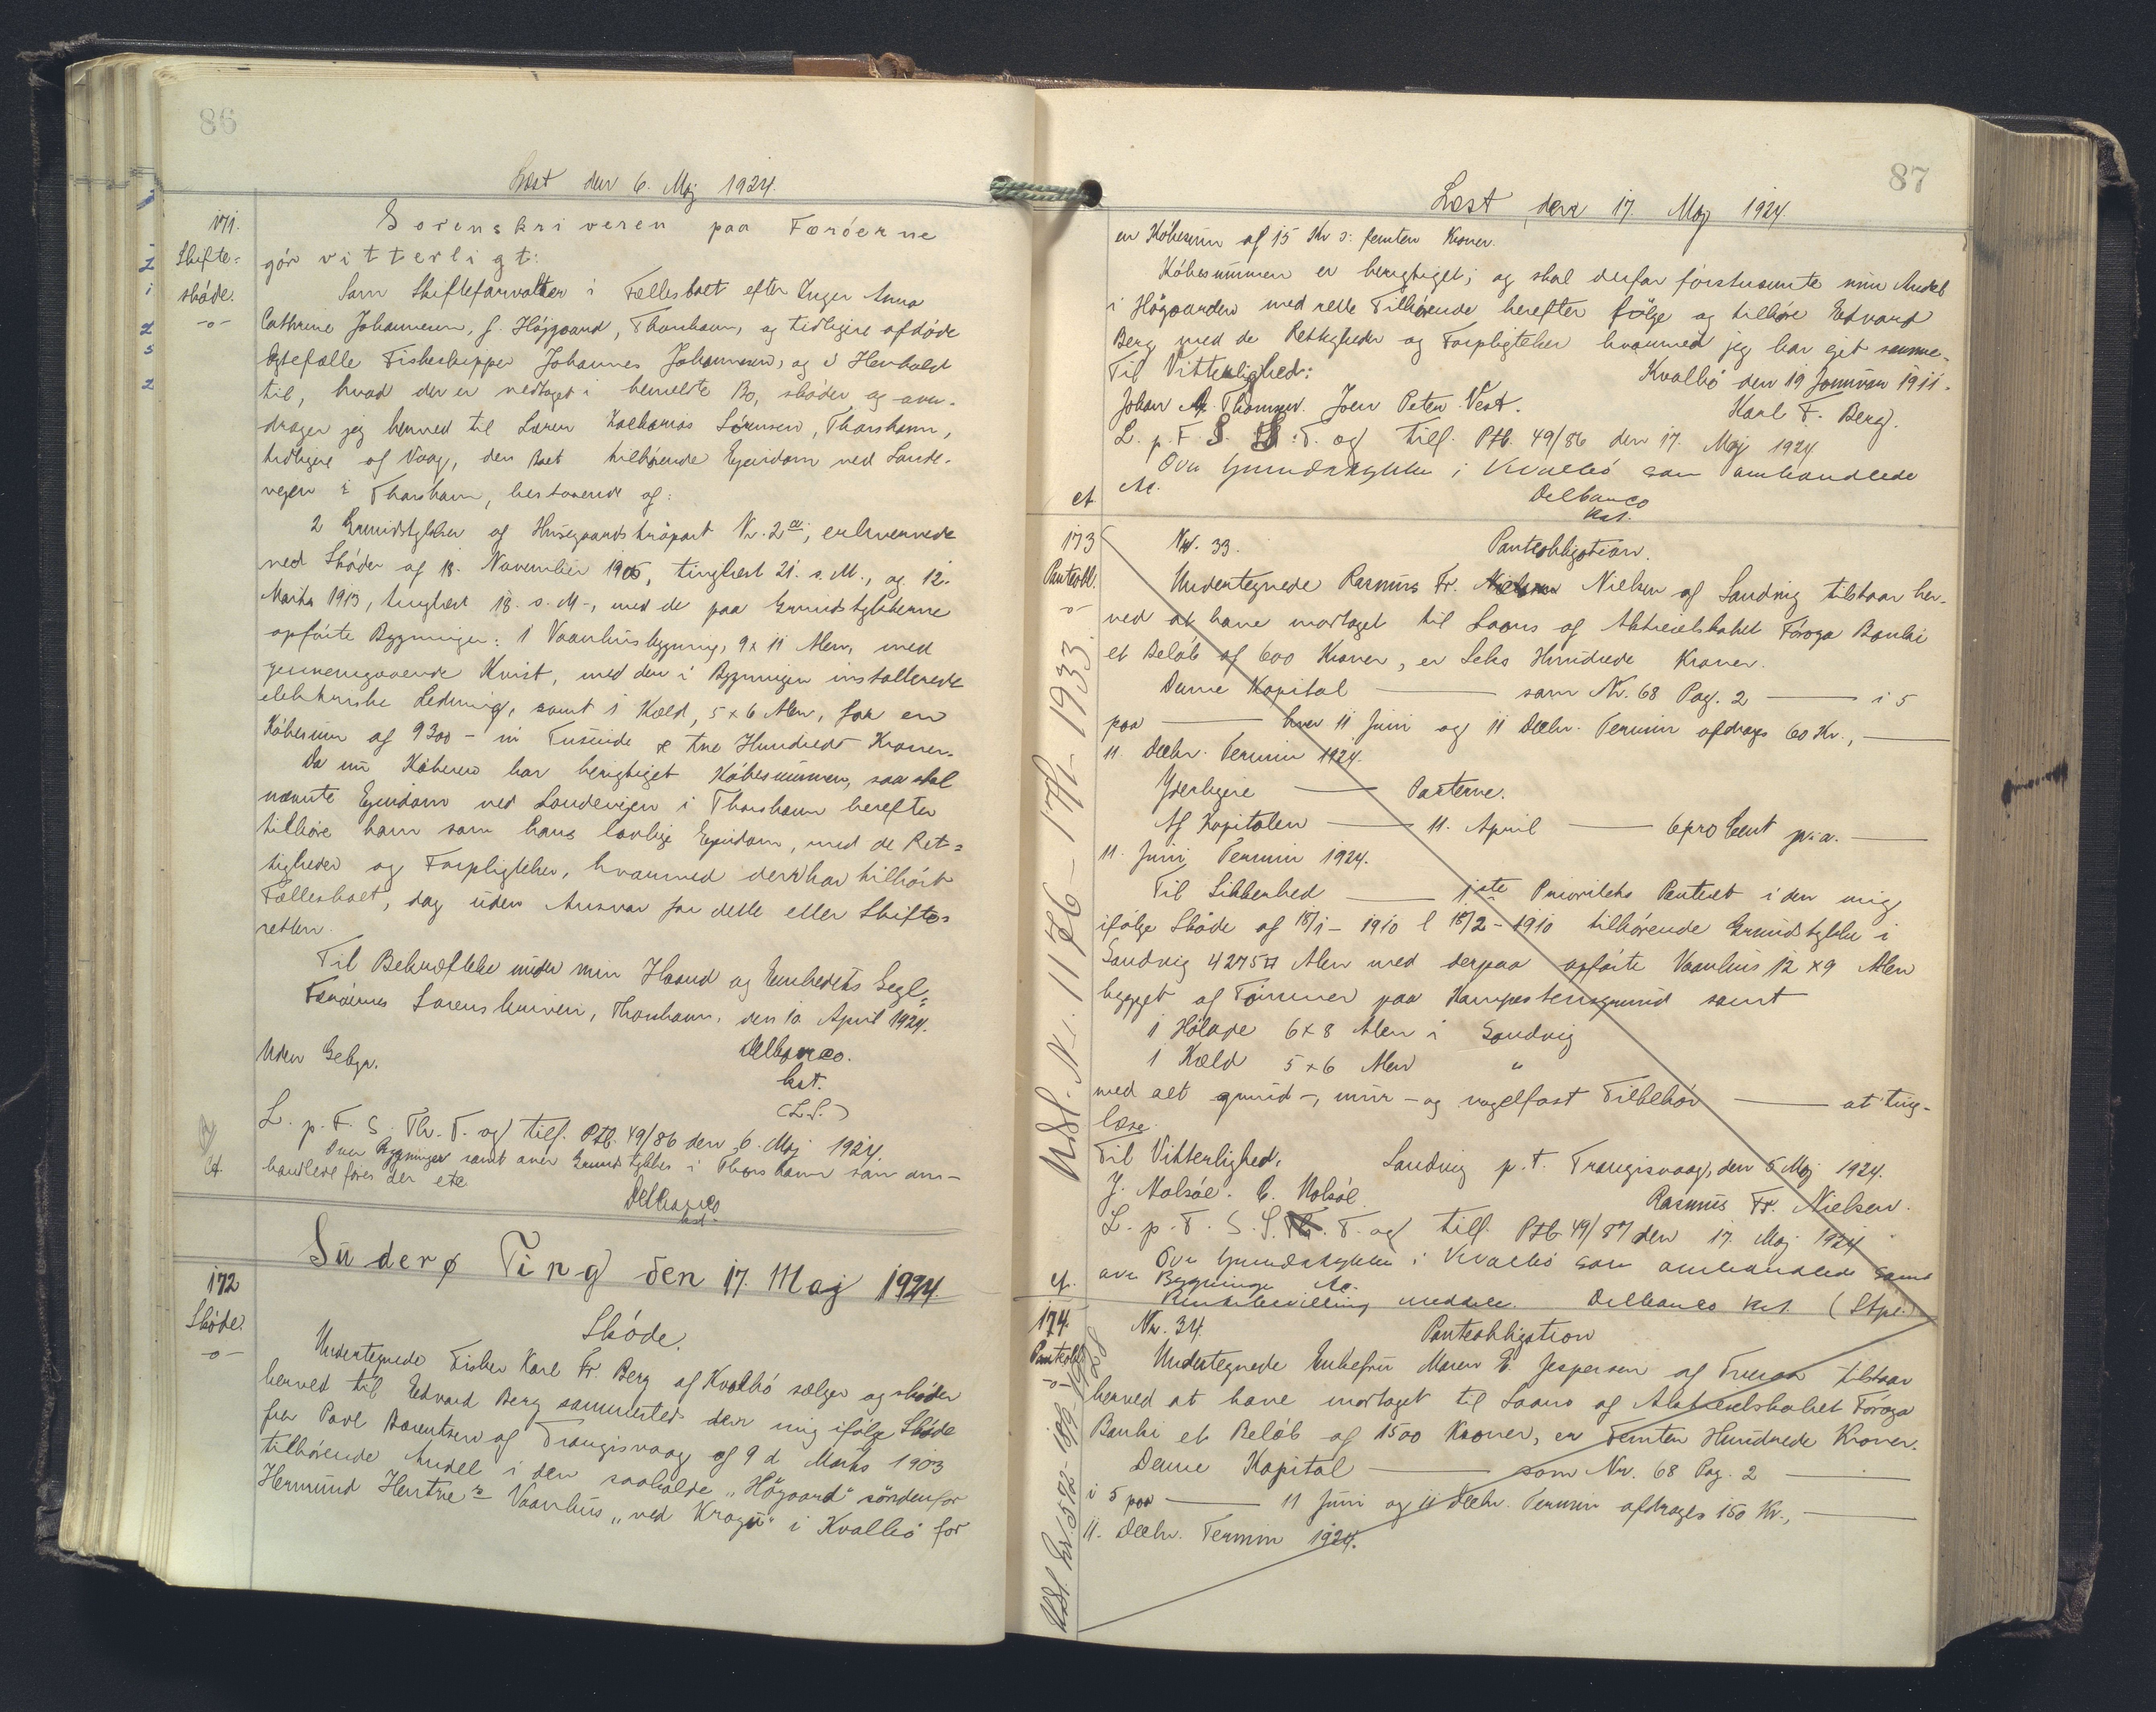 86
Læst den 6. Maj 1924.
171.
Skifte=
skøde.
-o-
Sorenskriveren paa Færøerne
gør vitterligt:
Som Skifteforvalter i Fællesboet efter Inger Anna
Cathrine Johannesen, f. Højgaard, Thorshavn, og tidligere afdøde
Ægtefælle Fiskeskipper Johannes Johannesen, og i Henhold
til, hvad der er vedtaget i bemeldte Bo, skøder og over-
drager jeg herved til Lærer Zacharias Sørensen, Thorshavn,
tidligere af Vaag, den Boet tilhørende Ejendom ved Lande-
vejen i Thorshavn, bestaaende af:
2 Grundstykker af Husegaardstraøpart Nr. 2a, erhvervede
ved Skøder af 18. November 1905, tinglæst 21. s. M., og 12.
Marts 1913, tinglæst 18. s. M., med de paa Grundstykkerne
opførte Bygninger: 1 Vaanhusbygning, 9 x 11 Alen, med
gennemgaaende Kvist, med den i Bygningen installerede
elektriske Ledning, samt 1 Kæld, 5 x 6 Alen, for en
Købesum af 9300 - ni Tusinde & tre Hundrede Kroner.
Da nu Køberen har berigtiget Købesummen, saa skal
nævnte Ejendom ved Landevejen i Thorshavn herefter
tilhøre ham som hans lovlige Ejendom, med de Ret=
tigheder og Forpligtelser, hvormed den har tilhørt
Fællesboet, dog uden Ansvar for dette eller Skifte=
retten.
Til Bekræftelse under min Haand og Embedets Segl=
Færøernes Sorenskriveri, Thorshavn, den 10 April 1924.
Uden Gebyr.
Delbanco.
kst.
(L.S.)
L. p. F. S. Th. T. og tilf. Ptb. 49/86 den 6. Maj 1924.
Over Bygninger samt over Grundstykker i Thorshavn som om-
handlede føres der ete
Delbanco
kst.
Suderø Ting den 17. Maj 1924.
172
Skøde.
-o-
Skøde.
Undertegnede Fisker Karl Fr. Berg af Kvalbø sælger og skøder
herved til Edvard Berg sammesteds den mig ifølge Skøde
fra Povl Barentsen af Trangisvaag af 9 d Marts 1903
tilhørende Andel i den saakaldte "Høgaard" søndenfor
Hermund Hentze's Vaanhus "ved Kraga" i Kvalbø for
87
Læst den 17. Maj 1924.
en Købesum af 15 Kr s: femten Kroner.
Købesummen er berigtiget; og skal derfor førstnævnte min Andel
i Høgaarden med rette Tilhørende herefter følge og tilhøre Edvard
Berg med de Rettigheder og Forpligtelser hvormed jeg har ejet samme.
Til Vitterlighed:
Kvalbø den 19 Januar 1911.
Johan M. Thomsen. Joen Peter Vest.
Karl F. Berg.
L. p. F. S. S. T. og tilf. Ptb. 49/86 den 17. Maj 1924
Over Grundstykke i Kvalbø som omhandlede
etc.
Delbanco
kst.
173
Panteobl.
-o-
Nr. 33.
Panteobligation.
Undertegnede Rasmus Fr. Nielsen af Sandvig tilstaar her-
ved at have modtaget til Laans af Aktieselskabet Føroya Banki
et Beløb af 600 Kroner, er Seks Hundrede Kroner.
Denne Kapital — som Nr. 68 Pag. 2 — i 5
paa — hver 11 Juni og 11 Decbr. Termin afdrages 60 Kr., —
11. Decbr. Termin 1924.
Yderligere — Parterne.
Af Kapitalen — 11. April — 6 pro Cent p.a. —
11. Juni Termin 1924.
Til Sikkerhed — 1ste Prioritets Panteret i den mig
ifølge Skøde af 18/1 - 1910 l 18/2 - 1910 tilhørende Grundstykke i
Sandvig 4275 □ Alen med derpaa opførte Vaanhus 12 x 9 Alen
bygget af Tømmer paa Kampestensgrund samt
1 Hølade 6 x 8 Alen i Sandvig
1 Kæld 5 x 6 Alen "
med alt grund-, mur- og nagelfast Tilbehør — at ting-
læse.
Til Vitterlighed:
Sandvig p.t. Trangisvaag, den 5 Maj 1924.
J. Nolsøe. C. Nolsøe.
Rasmus Fr. Nielsen.
L. p. F. S. S. T. og tilf. Ptb. 49/87 den 17. Maj 1924
Over Grundstykke i Kvalbø som omhandlede samt
over Bygninger etc.
Rentebevilling meddelt. Delbanco kst. (Stpl.)
Udsl. Nr. 1176 - 17/1- 1933.
174.
Panteobl.
-o-
Nr. 34.
Panteobligation
Undertegnede Enkefru Maren E. Jespersen af Tveraa tilstaar
herved at have modtaget til Laans af Aktieselskabet Føroya
Banki et Beløb af 1500 Kroner, er Femten Hundrede Kroner.
Denne Kapital — som Nr. 68 Pag. 2 —
i 5 paa — 11 Juni og 11 Decbr. Termin afdrages 150 Kr., —
11. Decbr. Termin 1924.